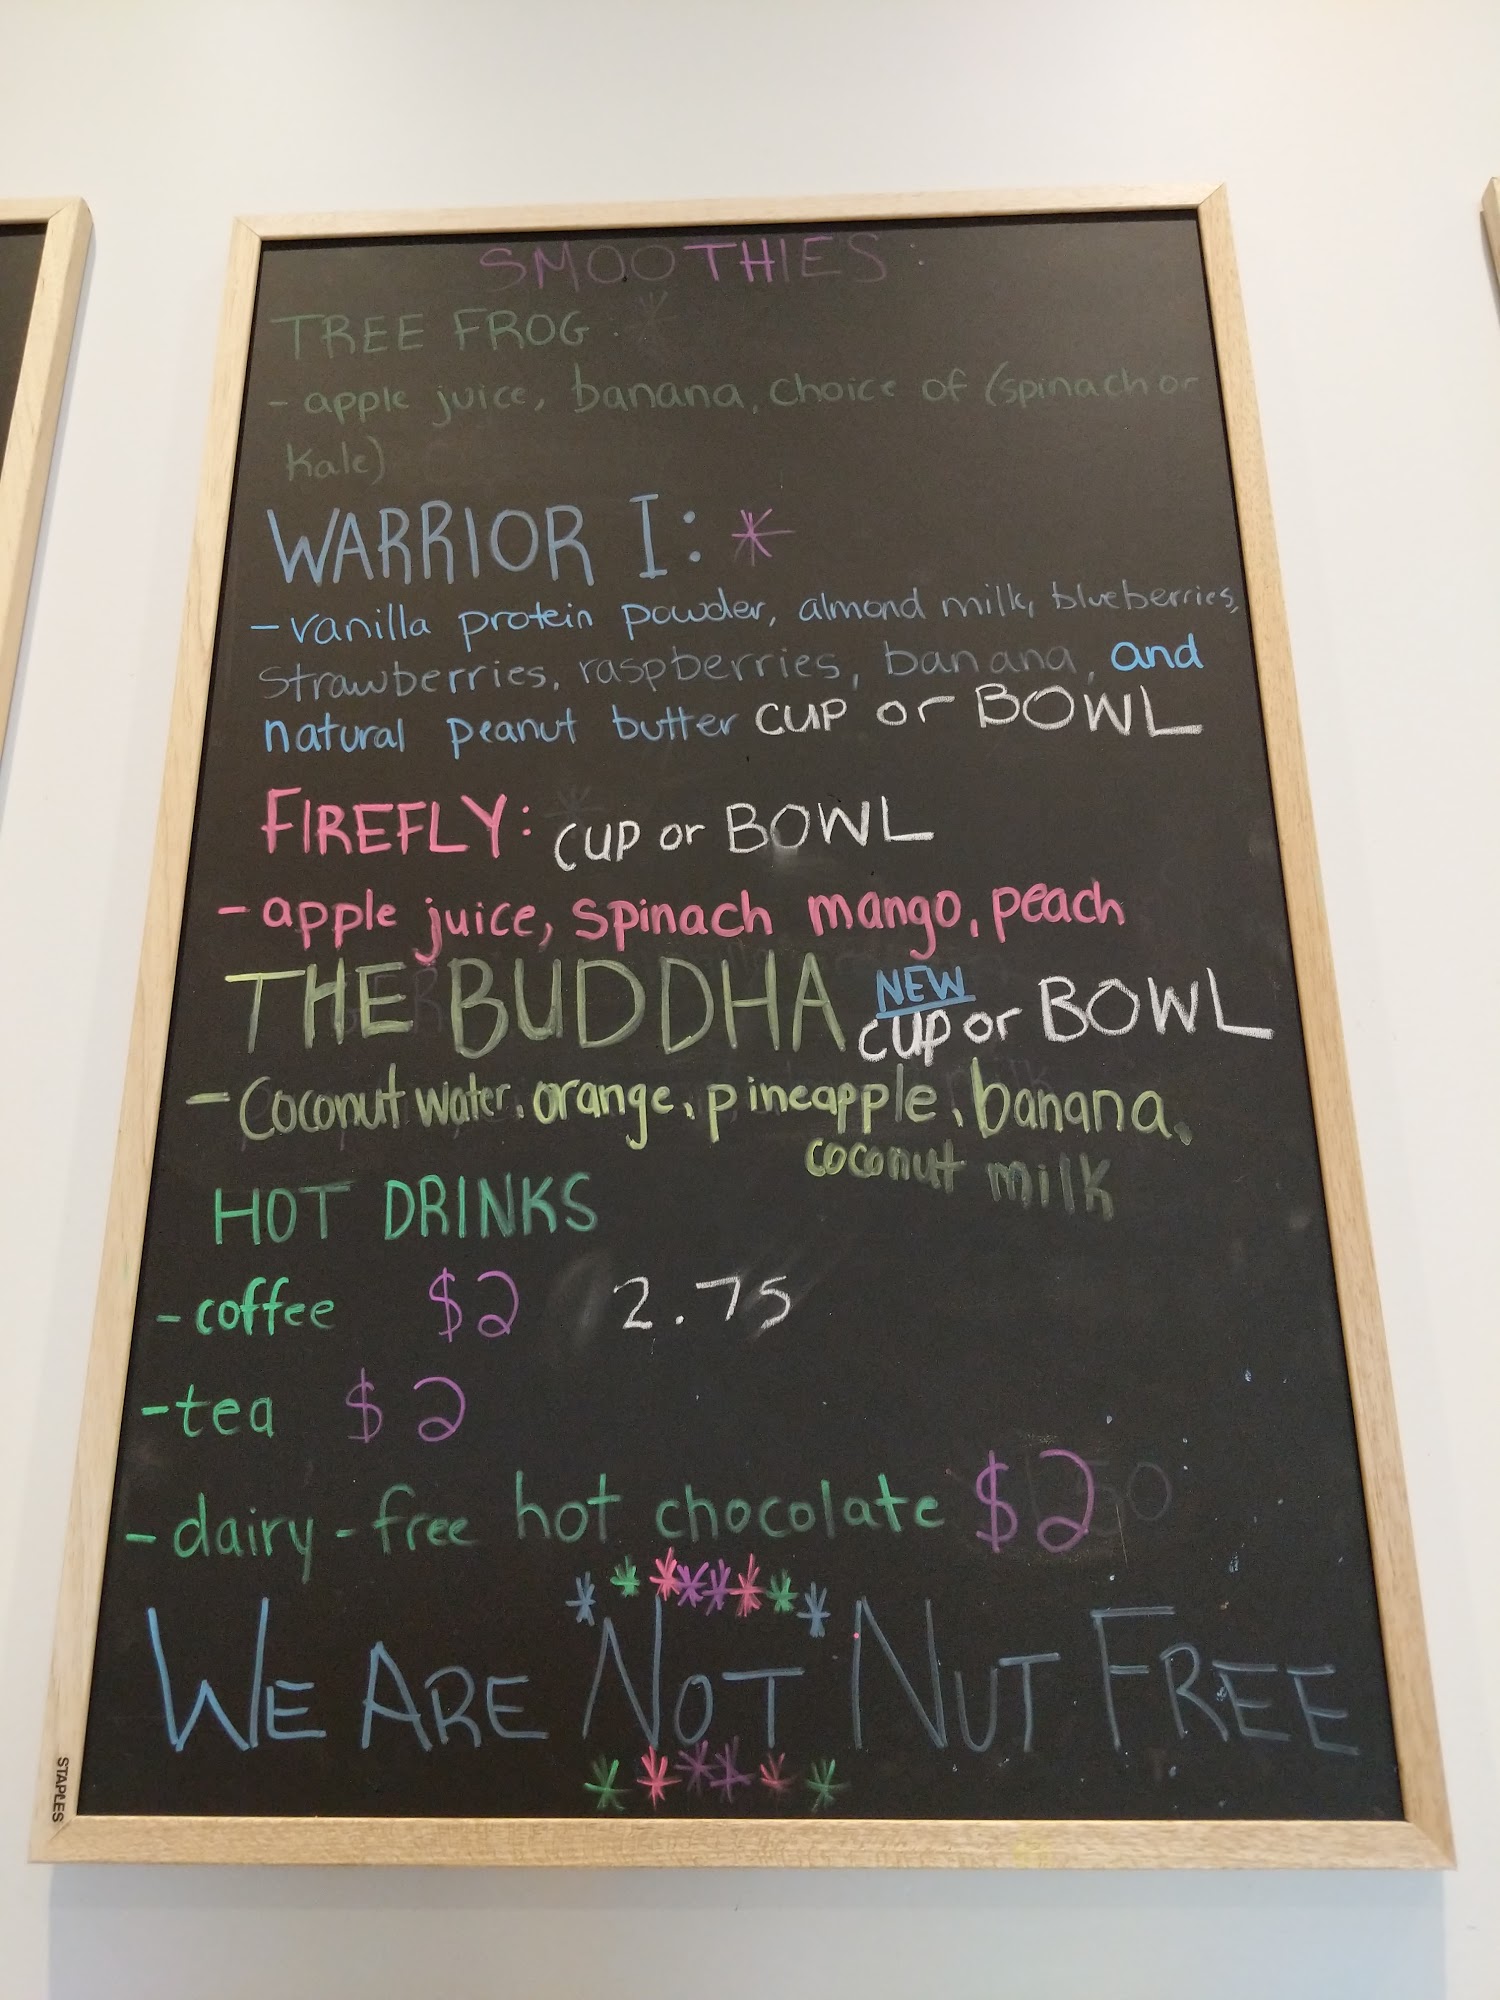 SMOOTHIES:
TREE FROG
- apple juice, banana, choice of (spinach or
kale)
WARRIOR I: *
- vanilla protein powder, almond milk, blueberries,
strawberries, raspberries, banana, and
natural peanut butter CUP or BOWL
FIREFLY: CUP or BOWL
- apple juice, spinach mango, peach
THE BUDDHA NEW CUP or BOWL
- Coconut water, orange, pineapple, banana,
coconut milk
HOT DRINKS
- coffee $2 2.75
- tea $2
- dairy-free hot chocolate $2
WE ARE NOT NUT FREE
STAPLES